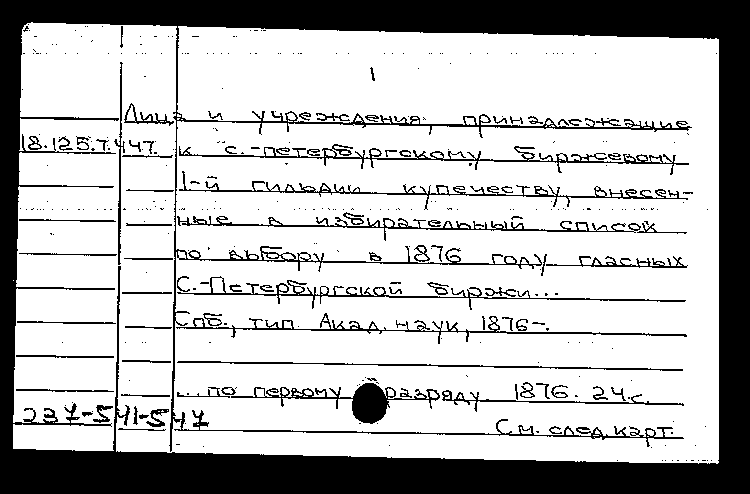 1
Лица и учреждения, принадлежащие
18.125.7.447. к с.-петербургскому биржевому
1-й гильдии купечеству, внесен-
ные в избирательный список
по выбору в 1876 году гласных
С.-Петербургской биржи...
Спб., тип. Акад. наук, 1876-.
...по первому разряду. 1876. 24 с.
237-541-547
См. след. карт.